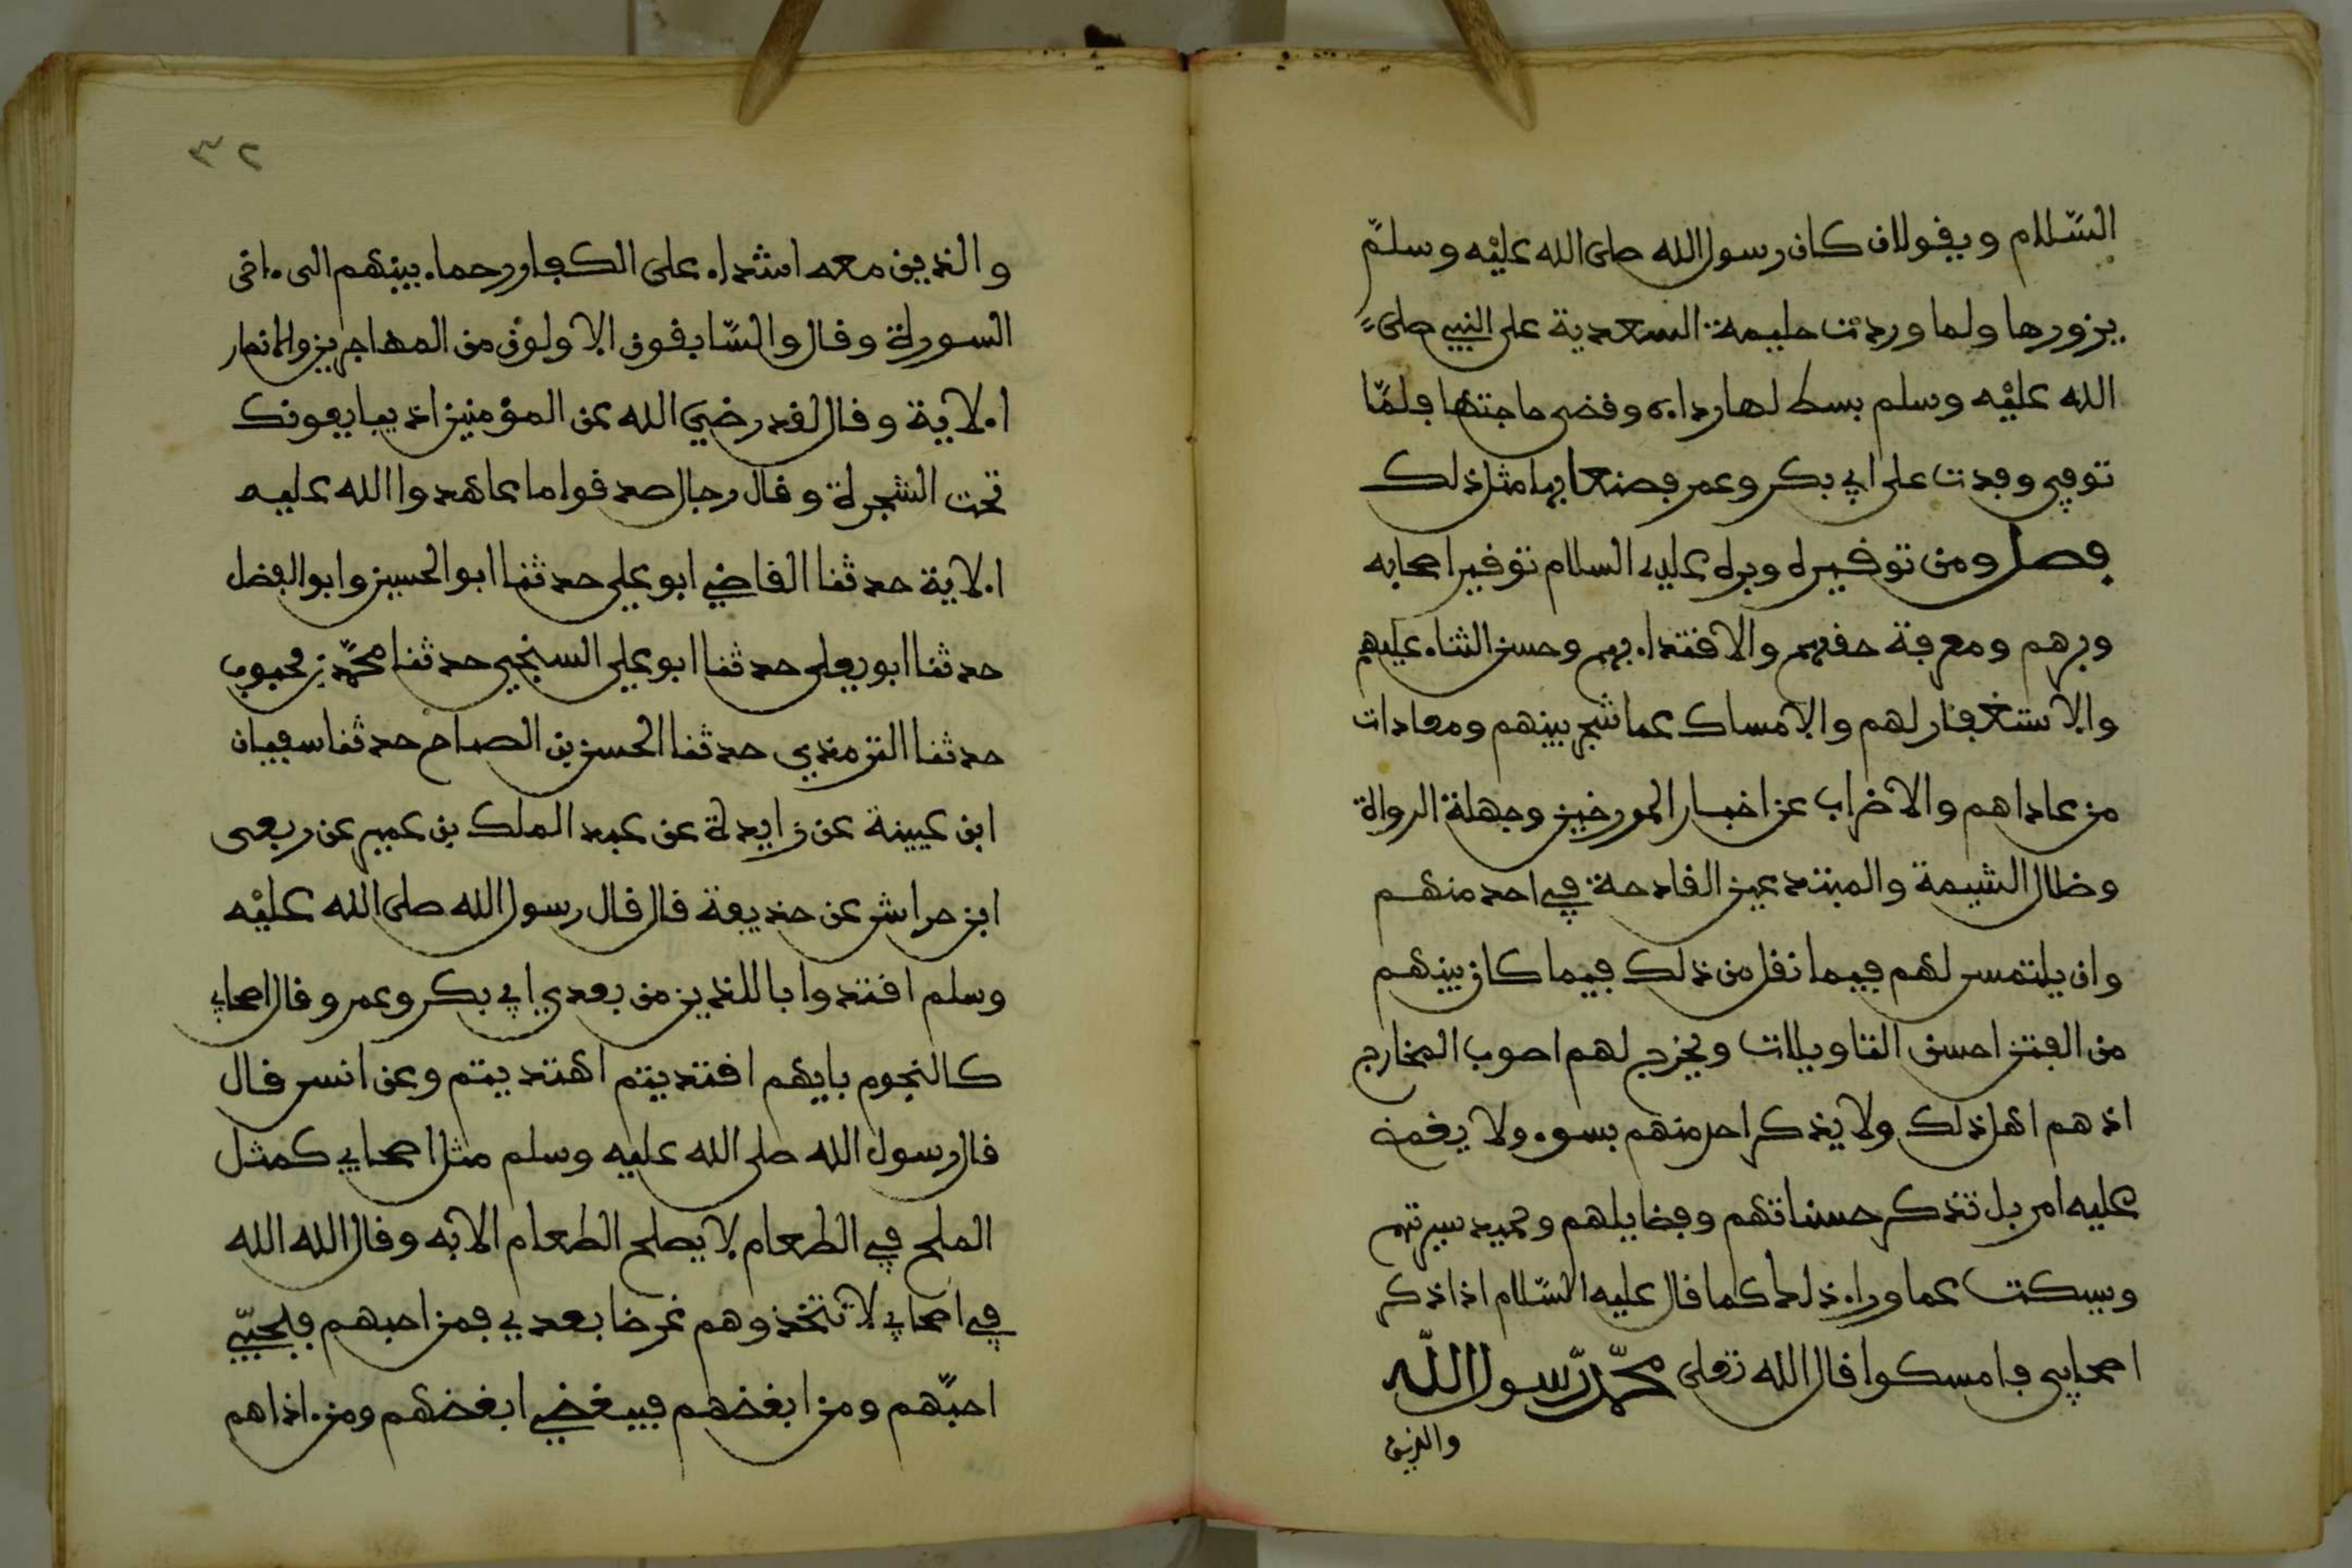 السّلام ويقولان كان رسول الله صلى الله عليْه وسلمّ
يزورها ولما وردت حليمة السعدية على النبي صلى
الله عليْه وسلم بسط لها رداءه وقضى حاجتها فلمّا
توفي وفدت على ابي بكر وعمر فصنعا بها مثل ذلك
فصل ومن توقيره وبره عليه السلام توقير اصحابه
وبرهم ومعرفة حقهم والاقتداء بهم وحسن الثناء عليهم
والاستغفار لهم والامساك عما شجر بينهم ومعادات
من عاداهم والاضراب عن اخبار المورخين وجهلة الرواة
وضلال الشيعة والمبتدعين القادحة في احد منهم
وان يلتمس لهم فيما نقل من ذلك فيما كان بينهم
من الفتن احسن التاويلات ويخرج لهم اصوب المخارج
اذ هم اهل ذلك ولا يذكر احد منهم بسوء ولا يغمض
عليه امر بل تذكر حسناتهم وفضايلهم وحميد سيرتهم
ويسكت عما وراء ذلك كما قال عليه السّلام اذا ذكر
اصحابي فامسكوا قال الله تعلى محمّد رّسول اللّه
والذين
٣٢
والذين معه اشداء على الكفار رحماء بينهم الى ءاخر
السورة وقال والسّابقون الاولون من المهاجرين والانصار
الاية وقال لقد رضي الله عن المؤمنين اذ يبايعونك
تحت الشجرة وقال رجال صدقوا ما عاهدوا الله عليه
الاية حدثنا القاضي ابو علي حدثنا ابو الحسين وابو الفضل
حدثنا ابو يعلى حدثنا ابو علي السنجي حدثنا محمّد بن محبوب
حدثنا الترمذي حدثنا الحسن بن الصباح حدثنا سفيان
ابن عيينة عن زايدة عن عبد الملك بن عمير عن ربعى
ابن حراش عن حذيفة قال قال رسول الله صلى الله عليْه
وسلم اقتدوا باللذين من بعدي ابي بكر وعمر وقال اصحابي
كالنجوم بايهم اقتديتم اهتديتم وعن انس قال
قال رسول الله صلى الله عليه وسلم مثل اصحابي كمثل
الملح في الطعام لا يصلح الطعام الا به وقال الله الله
في اصحابي لا تتخذوهم غرضا بعدي فمن احبهم فبحبّي
احبّهم ومن ابغضهم فببغضي ابغضهم ومن ءاذاهم